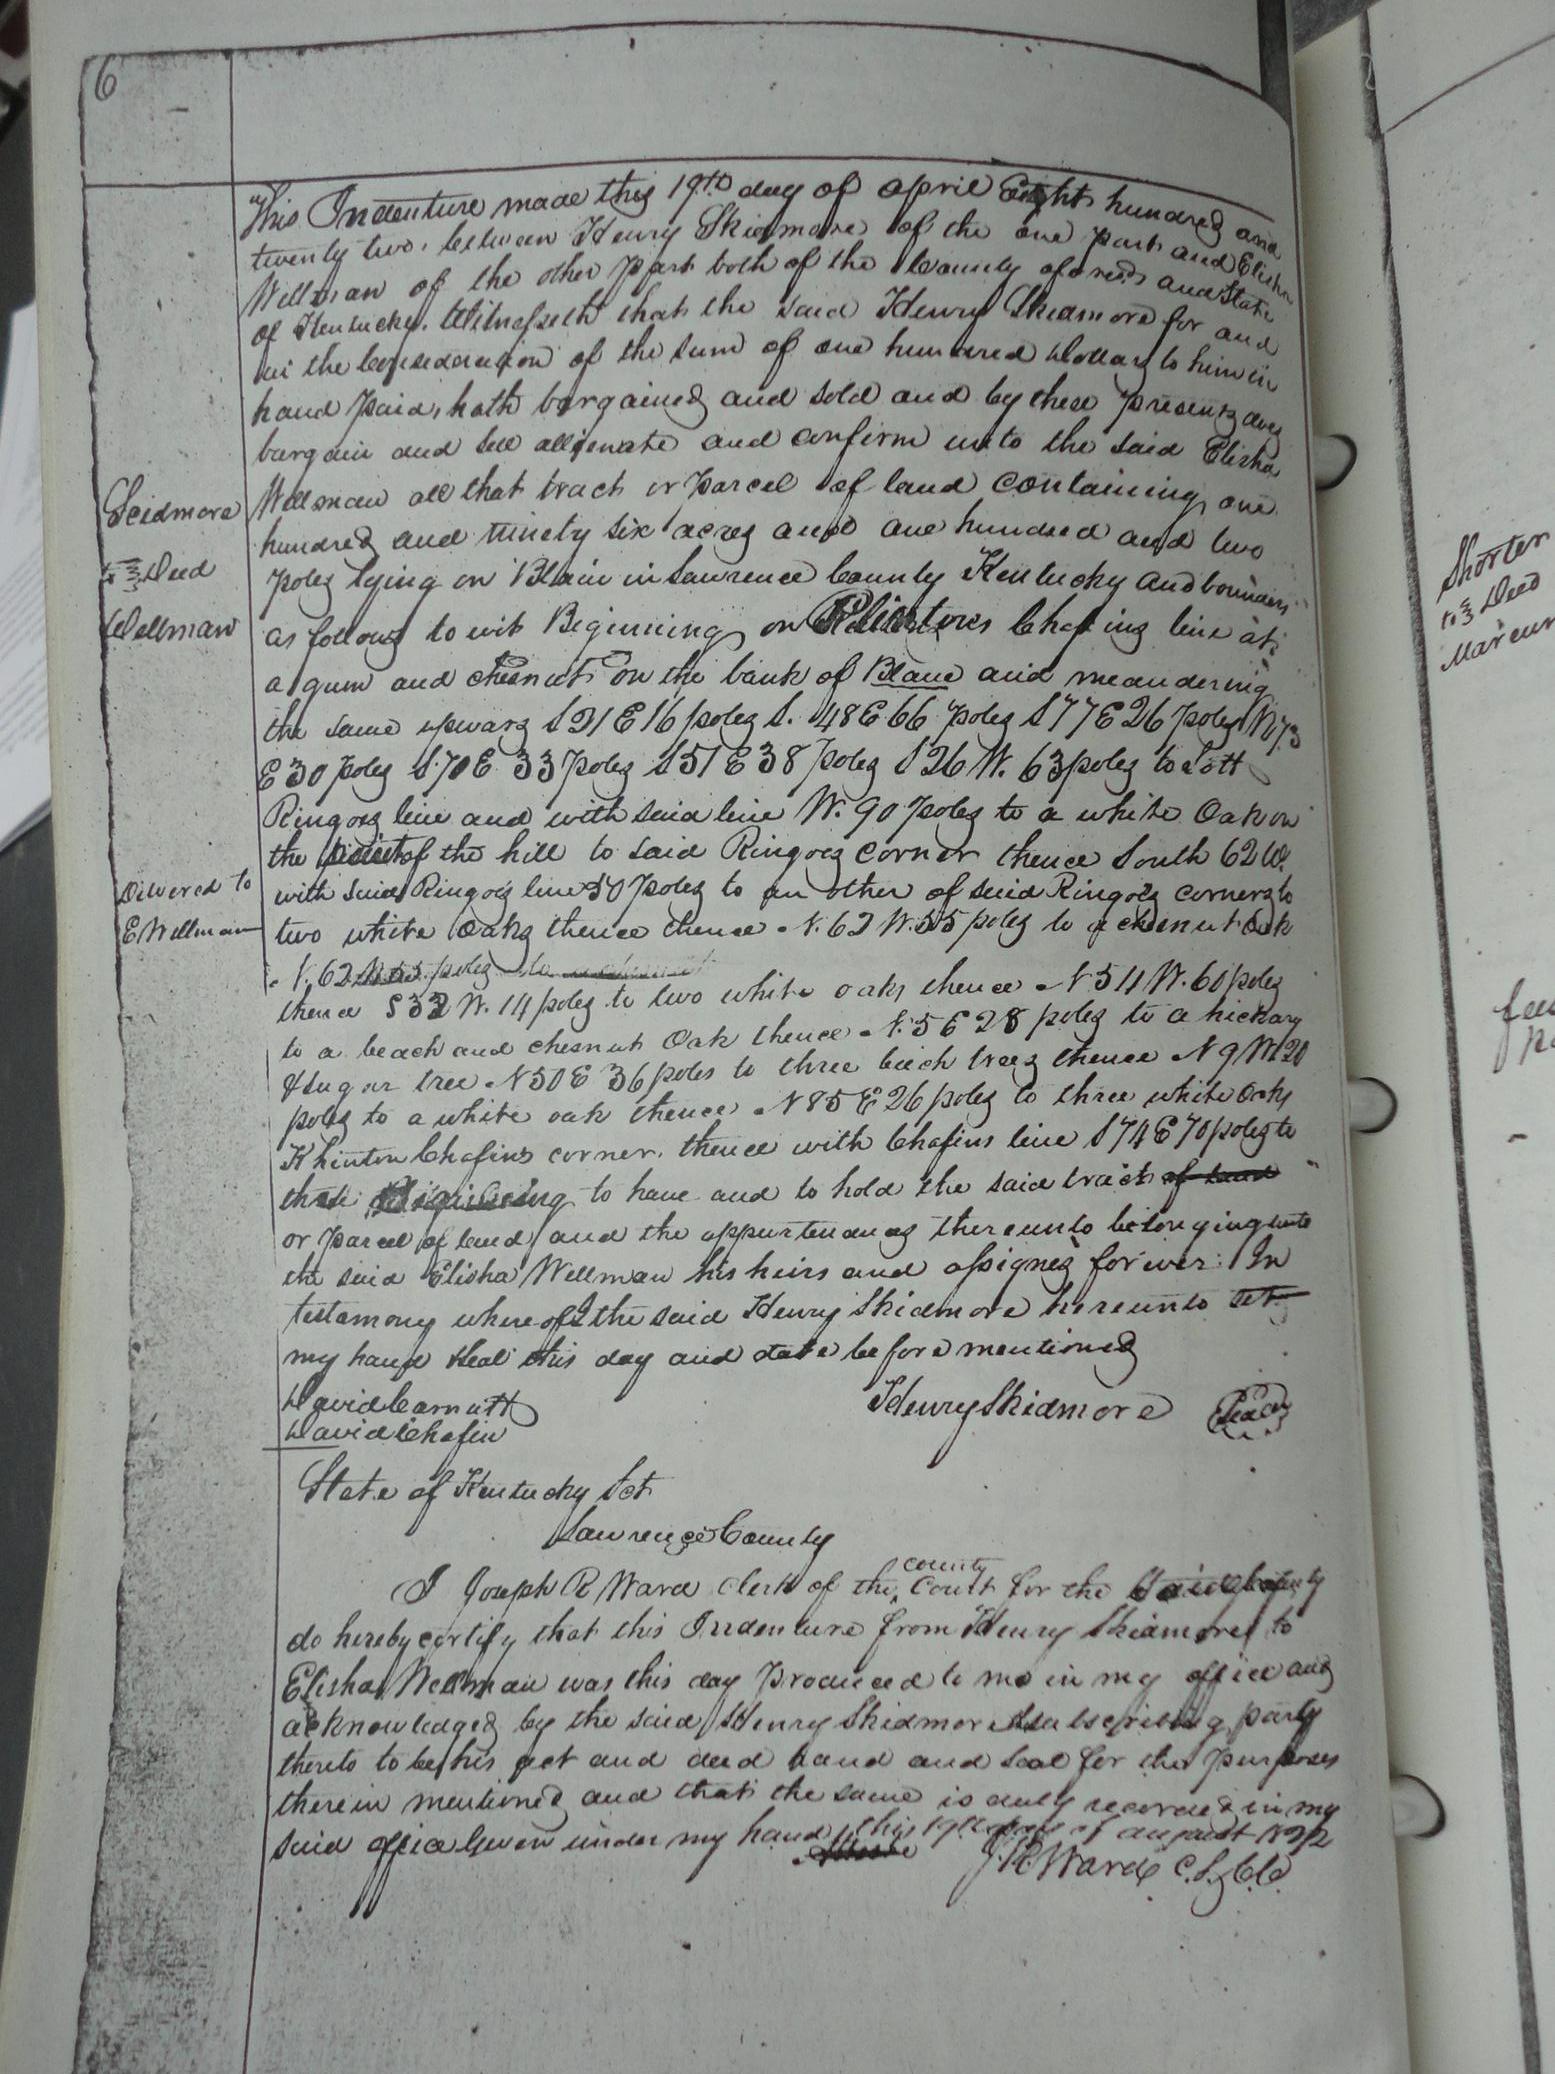 6
This Indenture made this 19th day of april Eight hundred and
twenty two, between Henry Skidmore of the one part and Elisha
Wellman of the other part both of the County aforesd and State
of Kentucky. Witnesseth that the said Henry Skidmore for and
in the Consideration of the sum of one hundred Dollars to him in
hand paid, hath bargained and sold and by these presents does
bargain and sell allienate and confirm unto the said Elisha
Wellman all that tract or parcel of land containing one
hundred and ninety six acres and one hundred and two
poles lying on Blain in Lawrence County Kentucky and bounded
as follows to wit Beginning on Chafins line at
a gum and chesnut on the bank of Blane and meandering
the same upwars S 21 E 16 poles S. 48 E 66 poles S 77 E 26 poles N 73
E 30 poles S 70 E 33 poles S 51 E 38 poles S 26 W. 63 poles to Lott
Ringoes line and with said line W. 90 poles to a white Oak on
the point of the hill to said Ringoes corner thence South 62 W.
with said Ringoes line 50 poles to an other of said Ringoes corners to
two white Oaks thence thence N. 62 W. 55 poles to a chesnut Oak
N. 62 W 55 poles to
thence S 32 W. 14 poles to two white oaks thence N 54 W. 60 poles
to a beach and chesnut Oak thence N. 5 E 28 poles to a hickory
& sugar tree N 50 E 36 poles to three beech trees thence N 9 W 20
poles to a white oak thence N 85 E 26 poles to three white oaks
Khinton Chafins corner. thence with Chafins line S 74 E 70 poles to
the Begining to have and to hold the said tract of land
or parcel of land and the appurtenances thereunto belonging unto
the said Elisha Wellman his heirs and assignes for ever. In
testamony whereof I the said Henry Skidmore hereunto set
my hand Seal this day and date before mentioned
David Carnutt
Henry Skidmore Seal
David Chafin
State of Kentucky Sct
Lawrence County
I Joseph R Ward Clerk of the county Court for the Said County
do hereby certify that this Indenture from Henry Skidmore to
Elisha Wellman was this day produced to me in my office and
acknowledged by the said Henry Skidmore subscribing party
thereto to be his act and deed hand and seal for the purposes
therein mentioned and that the same is duly recorded in my
said office Given under my hand this 19th day of august 1822
J. R. Ward C. L. C. C.
Skidmore
to Deed
Wellman
Delivered to
E Wellman
Shorter
to Deed
Marcum